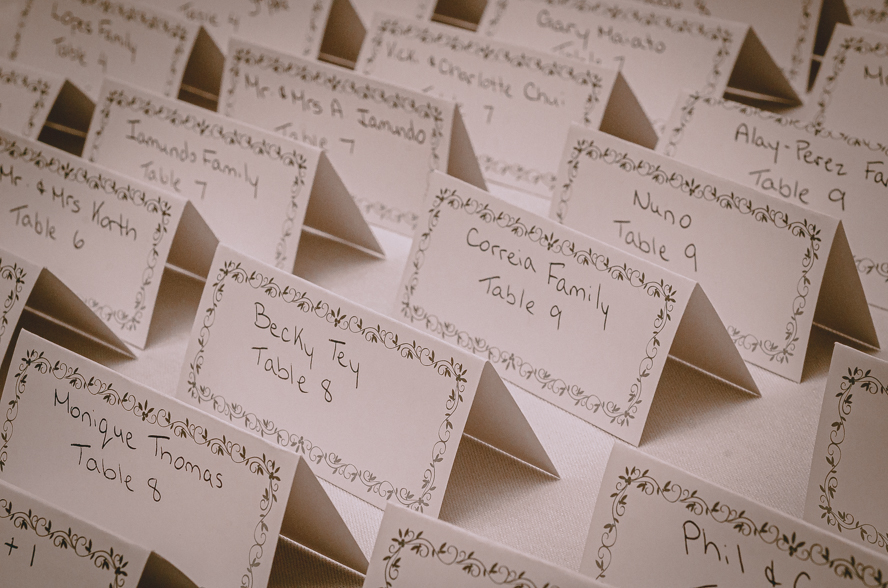 Lopes Family
Table 9
Table 4
Vick & Charlotte Chui
7
Gary
Table 7
Mr. & Mrs A Iamundo
Table 7
Iamundo Family
Table 7
Alay-Perez Fa
Table 9
Mr. & Mrs Korth
Table 6
Nuno
Table 9
Correia Family
Table 9
Becky Tey
Table 8
Monique Thomas
Table 8
+1
Phil &